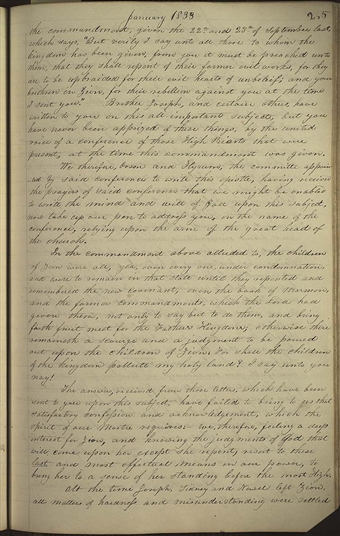 January 1833
the commandment, given the 22nd and 23rd of September last,
which says, "But verily I say unto all those to whom the
kingdom has been given, from you it must be preached unto
them, that they shall repent of their former evil works, for they
are to be upbraided for their evil hearts of unbelief; and your
brethren in Zion, for their rebellion against you at the time
I sent you."     Brother Joseph, and certain others have
written to you on this all important subject, but you
have never been apprized of these things, by the united
voice of a conference of those High Priests that were
present, at the time this commandment was given.
We therefore, Orson and Hyrum, the committe appoint
ed by said conference to write this epistle, having received
the prayers of said conference that we might be enabled
to write the mind and will of God upon this subject,
now take up our pen to address you, in the name of the
conference, relying upon the arm of the great head of
the church.
In the commandment above alluded to, the children
of Zion were all, yea, even every one, under condemnation
and were to remain in that state until they repented and
remembered the new covenant, even the book of Mormon,
and the former commandments, which the Lord had
given them, not only to say but to do them, and bring
forth fruit meet for the Fathers Kingdom; otherwise there
remaineth a scourge and a judgment to be poured
out upon the children of Zion: For shall the children
of the kingdom pollute my holy land? I say unto you
nay!
The answers, received from those letters, which have been
sent to you upon this subject, have failed to bring to us that
satisfactory confession and acknowledgement, which the
spirit of our Master requires: we, therefore, feeling a deep
interest for Zion, and knowing the judgments of God that
will come upon her except she repent, resort to these
last and most effectual means in our power, to
bring her to a sense of her standing before the most High.
At the time Joseph, Sidney and Newel left Zion,
all matters of hardness and misunderstanding were settled